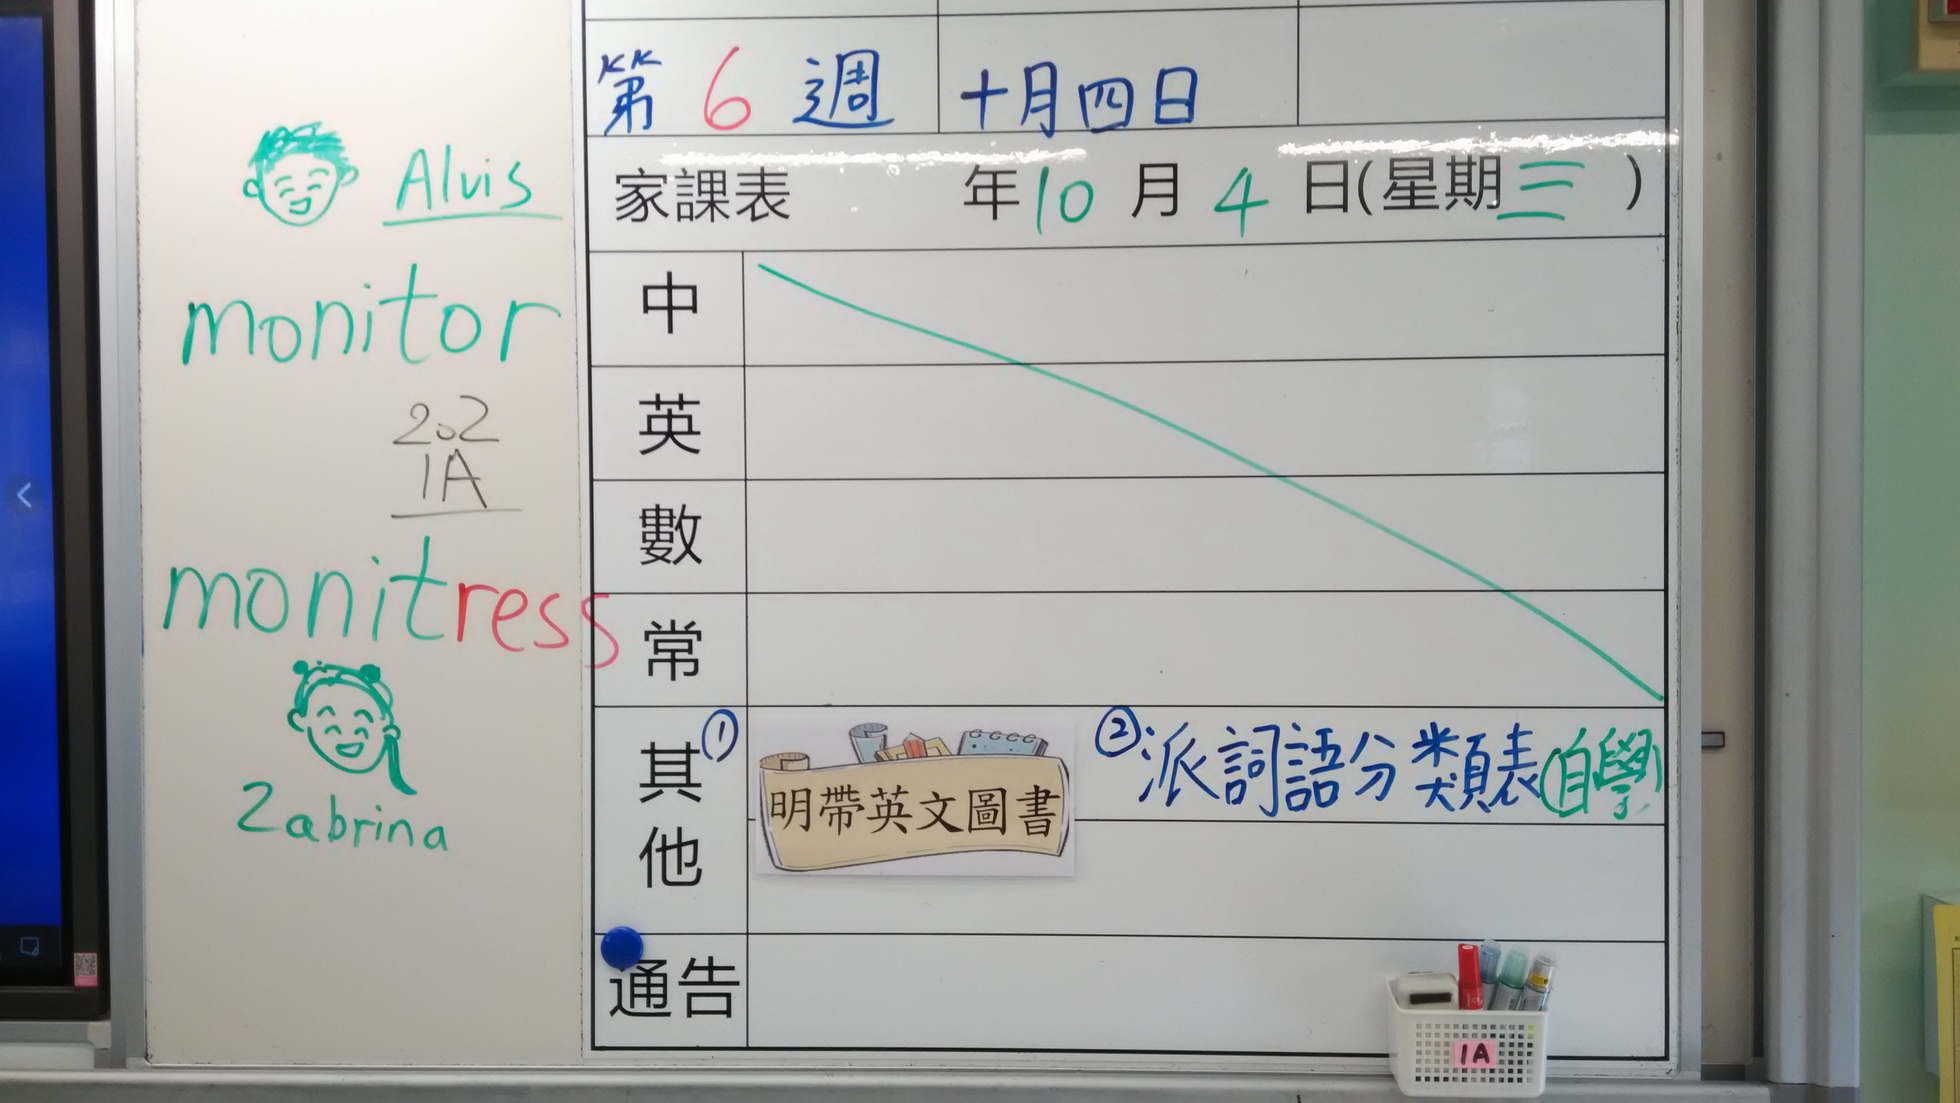 Alvis
monitor
202
1A
monitress
Zabrina
第 6 週 十月四日
家課表 年10月4日(星期三)
中
英
數
常
其他 ① 明帶英文圖書 ②派詞語分類表(自學)
通告
1A